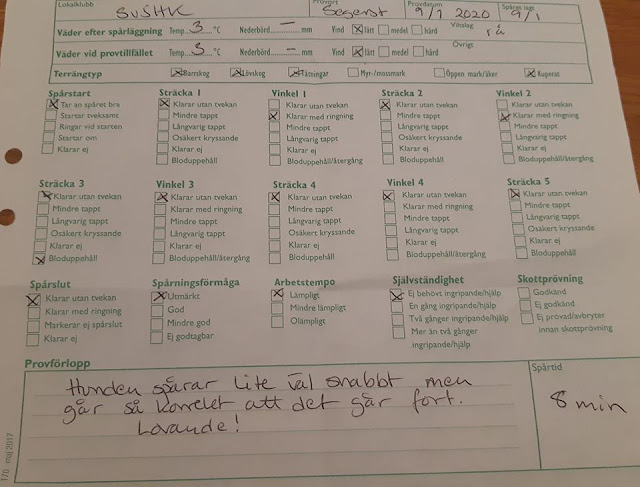 Lokalklubb
SVSHK
Provort
Segerst
Provdatum
9/1 2020
Spåret lagt
9/1
Väder efter spårläggning Temp. 3 °C Nederbörd – mm Vind lätt medel hård
Vinslag
rå
Väder vid provtillfället Temp. 3 °C Nederbörd – mm Vind lätt medel hård
Övrigt
Terrängtyp Barrskog Lövskog Tätningar Myr-/mossmark Öppen mark/åker Kuperat
Spårstart
Tar an spåret bra
Startar tveksamt
Ringar vid starten
Startar om
Klarar ej
Sträcka 1
Klarar utan tvekan
Mindre tappt
Långvarig tappt
Osäkert kryssande
Klarar ej
Bloduppehåll
Vinkel 1
Klarar utan tvekan
Klarar med ringning
Mindre tappt
Långvarig tappt
Klarar ej
Bloduppehåll/återgång
Sträcka 2
Klarar utan tvekan
Mindre tappt
Långvarig tappt
Osäkert kryssande
Klarar ej
Bloduppehåll
Vinkel 2
Klarar utan tvekan
Klarar med ringning
Mindre tappt
Långvarig tappt
Klarar ej
Bloduppehåll/återgång
Sträcka 3
Klarar utan tvekan
Mindre tappt
Långvarig tappt
Osäkert kryssande
Klarar ej
Bloduppehåll
Vinkel 3
Klarar utan tvekan
Klarar med ringning
Mindre tappt
Långvarig tappt
Klarar ej
Bloduppehåll/återgång
Sträcka 4
Klarar utan tvekan
Mindre tappt
Långvarig tappt
Osäkert kryssande
Klarar ej
Bloduppehåll
Vinkel 4
Klarar utan tvekan
Klarar med ringning
Mindre tappt
Långvarig tappt
Klarar ej
Bloduppehåll/återgång
Sträcka 5
Klarar utan tvekan
Mindre tappt
Långvarig tappt
Osäkert kryssande
Klarar ej
Bloduppehåll
Spårslut
Klarar utan tvekan
Klarar med ringning
Markerar ej spårslut
Klarar ej
Spårningsförmåga
Utmärkt
God
Mindre god
Ej godtagbar
Arbetstempo
Lämpligt
Mindre lämpligt
Olämpligt
Självständighet
Ej behövt ingripande/hjälp
En gång ingripande/hjälp
Två gånger ingripande/hjälp
Mer än två gånger
ingripande/hjälp
Skottprövning
Godkänd
Ej godkänd
Ej prövad/avbryter
innan skottprövning
Provförlopp
Hunden spårar lite väl snabbt men
går så korrekt att det går fort.
Lovande!
Spårtid
8 min
170 maj 2017